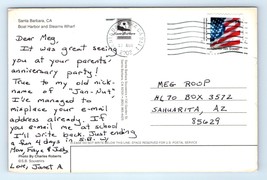 Santa Barbara, CA
Boat Harbor and Stearns Wharf
Dear Meg,
It was great seeing
you at your parents'
anniversary party!
True to my old nick-
name of "Jan-Nut"
I've managed to
misplace your e-mail
address already. If
you e-mail me at school
I'll write back. Just ending
a fun 4 days in S.B. w/
Mom, Faye & Judy
Photo By Charles Roberts
W.C.S. Souvenirs
Love, Janet A.
MEG ROOP
HC 70 BOX 3572
SAHUARITA, AZ
85629